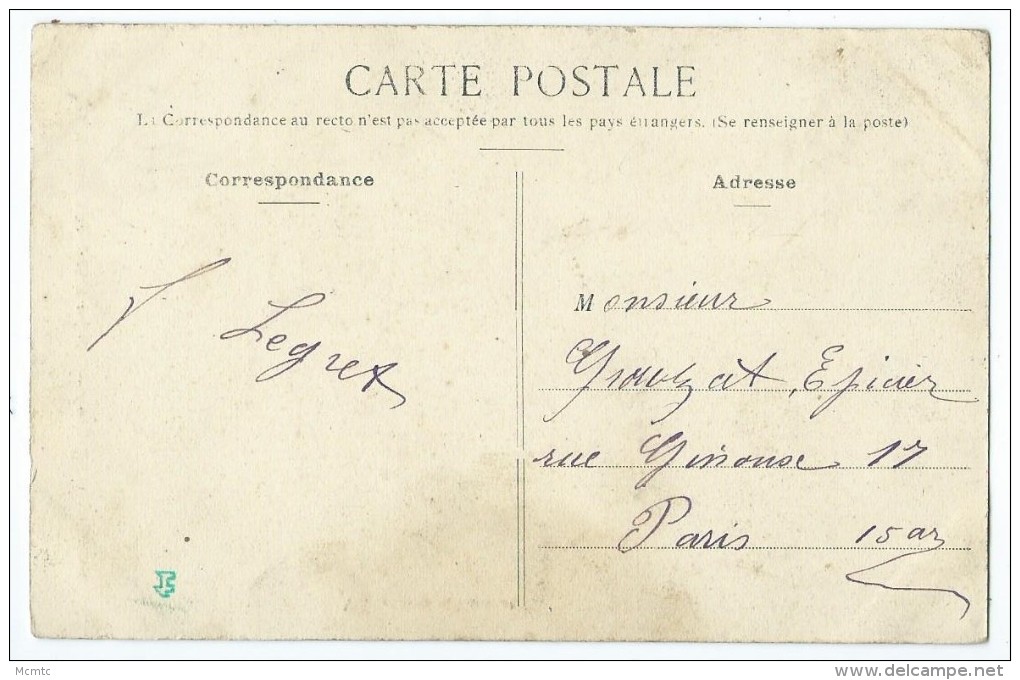 CARTE POSTALE
La Correspondance au recto n'est pas acceptée par tous les pays étrangers. (Se renseigner à la poste)
Correspondance
Adresse
Legret
Monsieur
Epicier
rue Ginoux 17
Paris 15 ar
Mcmtc
www.delcampe.net